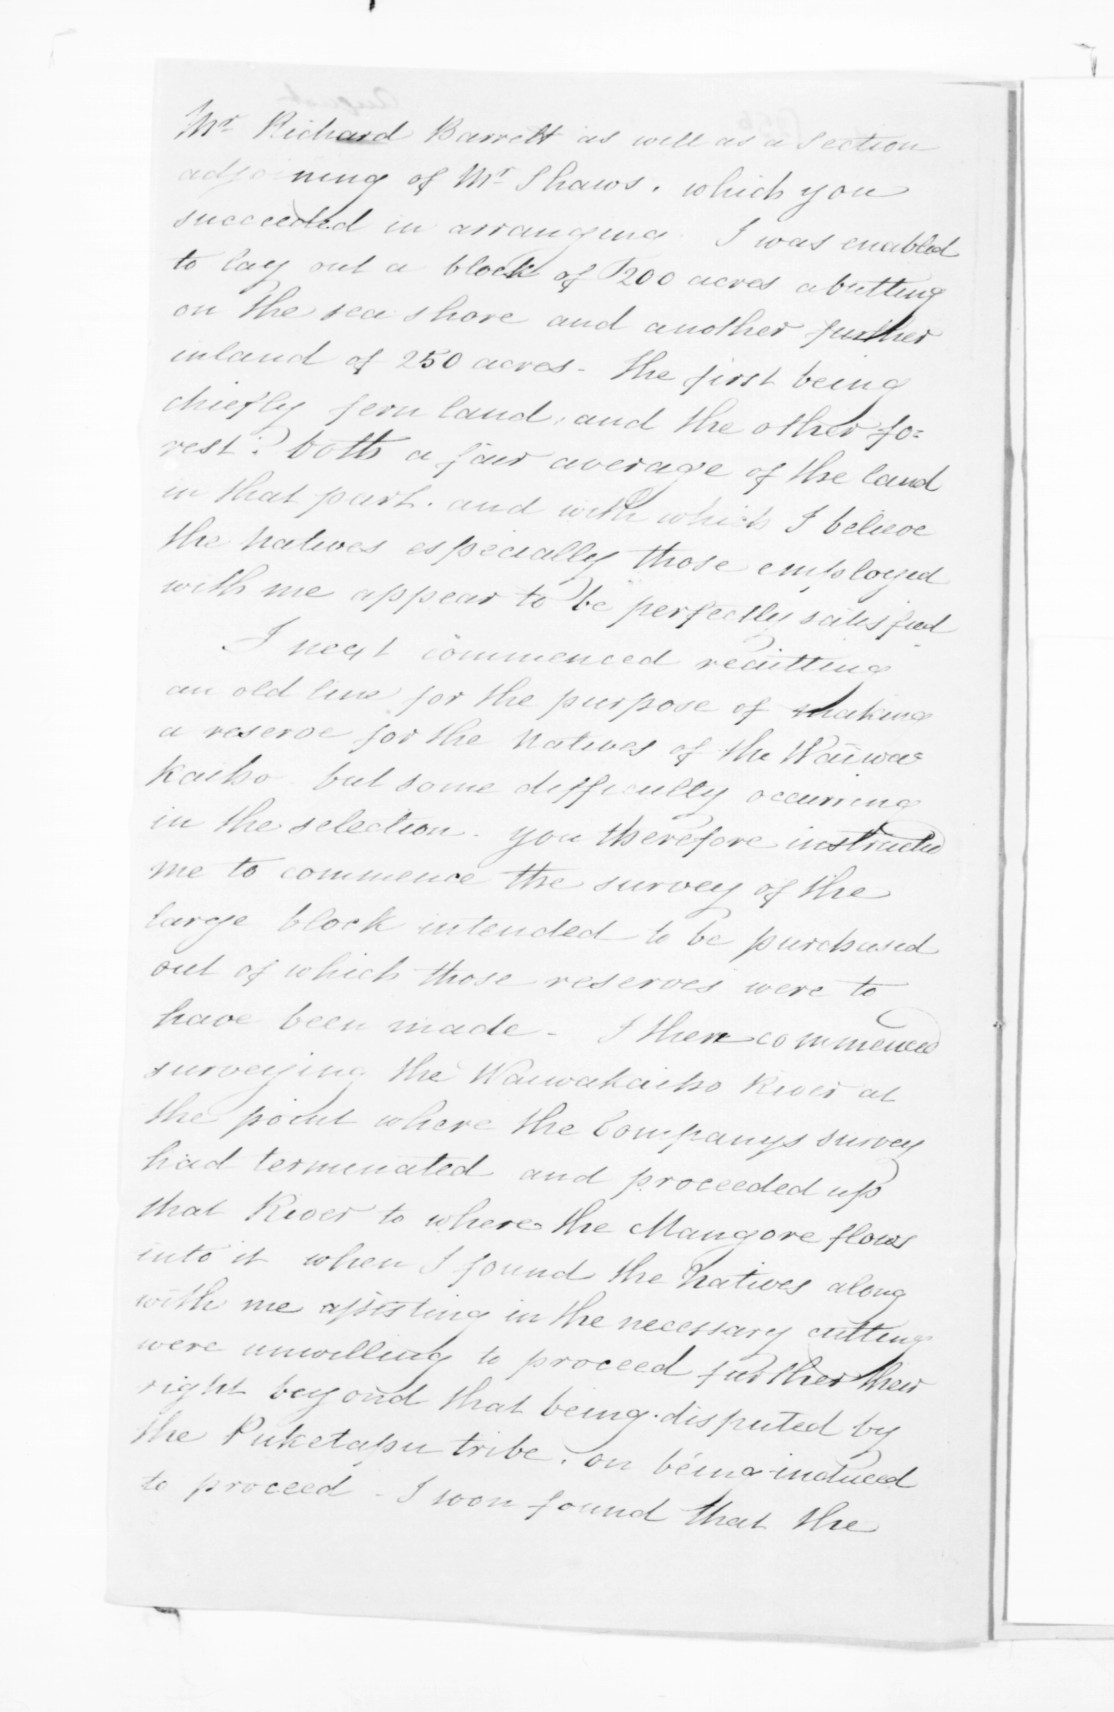 Mr Richard Barrett as well as a Section
adjoining of Mr Shaws. which you
succeeded in arranging. I was enabled
to lay out a block of 1200 acres abutting
on the sea shore and another further
inland of 250 acres - the first being
chiefly fern land, and the other fo=
rest: both a fair average of the land
in that part. and with which I believe
the natives especially those employed
with me appear to be perfectly satisfied
I next commenced recutting
an old line for the purpose of making
a reserve for the natives of the Waiwa=
Kaiho but some difficulty occurring
in the selection. you therefore instructed
me to commence the survey of the
large block intended to be purchased
out of which those reserves were to
have been made - I then commenced
surveying the Waiwakaiho River at
the point where the Companys survey
had terminated and proceeded up
that River to where the Mangore flows
into it when I found the natives along
with me assisting in the necessary cutting
were unwilling to proceed further their
right beyond that being disputed by
the Puketapu tribe. on being induced
to proceed - I soon found that the